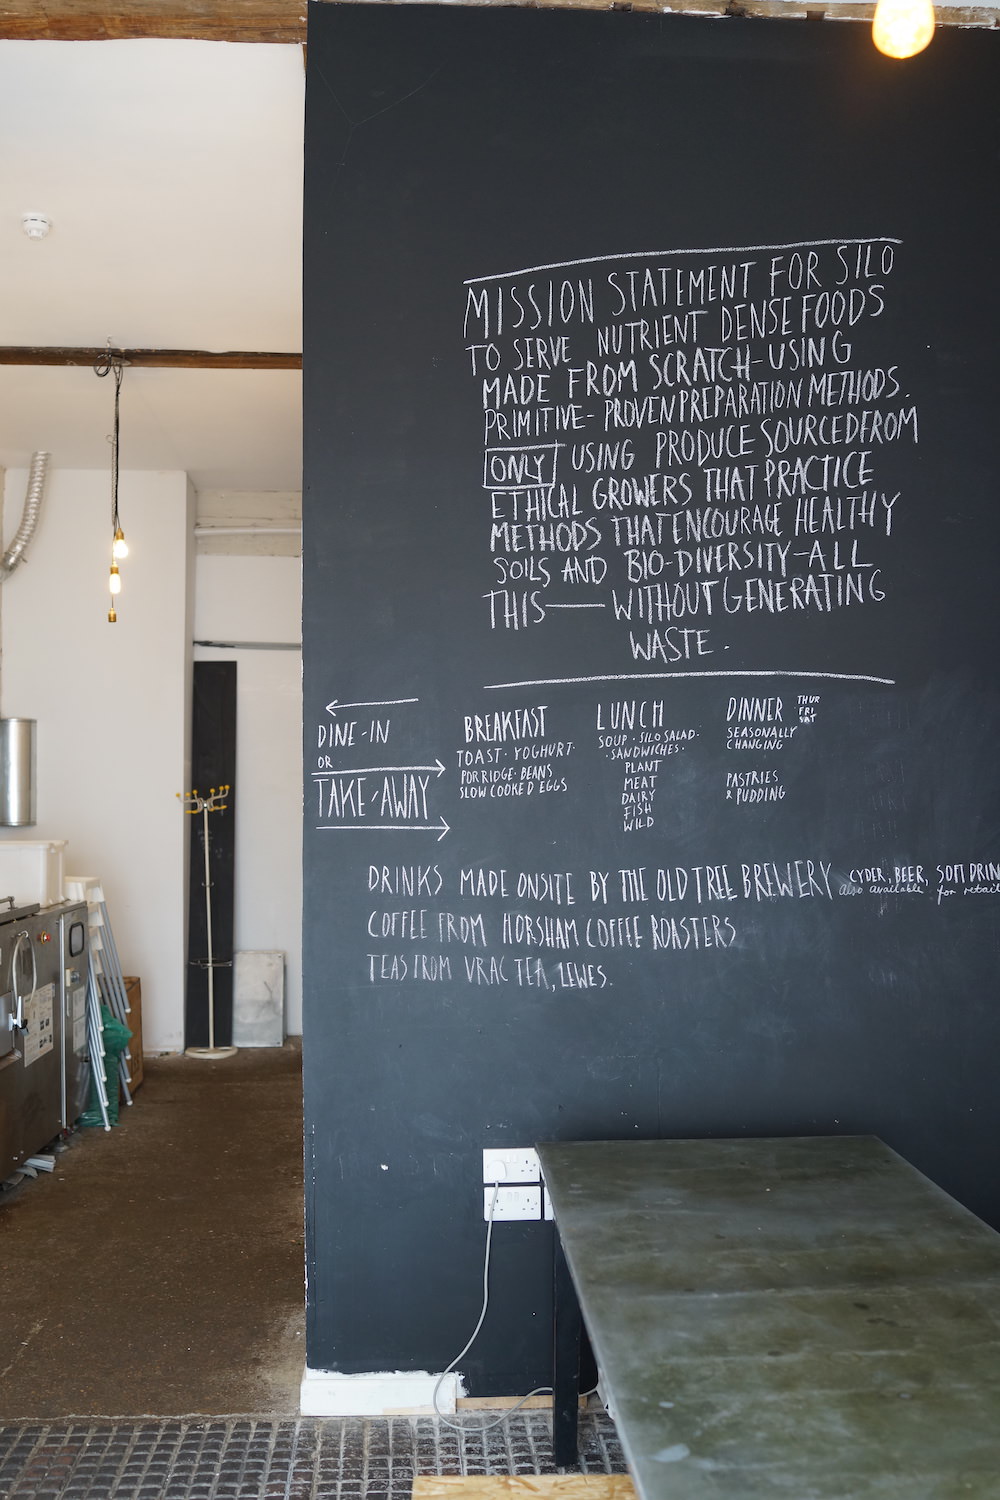 MISSION STATEMENT FOR SILO
TO SERVE NUTRIENT DENSE FOODS
MADE FROM SCRATCH-USING
PRIMITIVE- PROVEN PREPARATION METHODS.
ONLY USING PRODUCE SOURCED FROM
ETHICAL GROWERS THAT PRACTICE
METHODS THAT ENCOURAGE HEALTHY
SOILS AND BIO-DIVERSITY-ALL
THIS—WITHOUT GENERATING
WASTE.
DINE-IN
OR
TAKE-AWAY
BREAKFAST
TOAST · YOGHURT ·
PORRIDGE · BEANS
SLOW COOKED EGGS
LUNCH
SOUP · SILO SALAD ·
· SANDWICHES ·
PLANT
MEAT
DAIRY
FISH
WILD
DINNER
THUR
FRI
SAT
SEASONALLY
CHANGING
PASTRIES
& PUDDING
DRINKS MADE ONSITE BY THE OLD TREE BREWERY CYDER, BEER, SOFT DRIN
also available for retail
COFFEE FROM HORSHAM COFFEE ROASTERS
TEAS FROM VRAC TEA, LEWES.